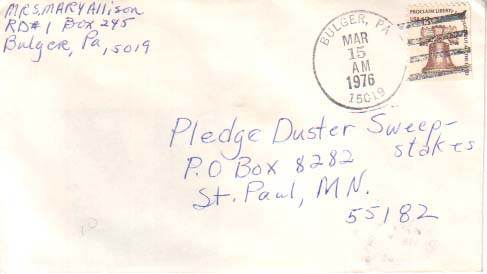 MRS. MARY Allison
RD#1 Box 245
Bulger, Pa, 5019
BULGER, PA
MAR
15
AM
1976
15019
PROCLAIM LIBERTY
Pledge Duster Sweep-
stakes
P.O Box 8282
St. Paul, MN.
55182